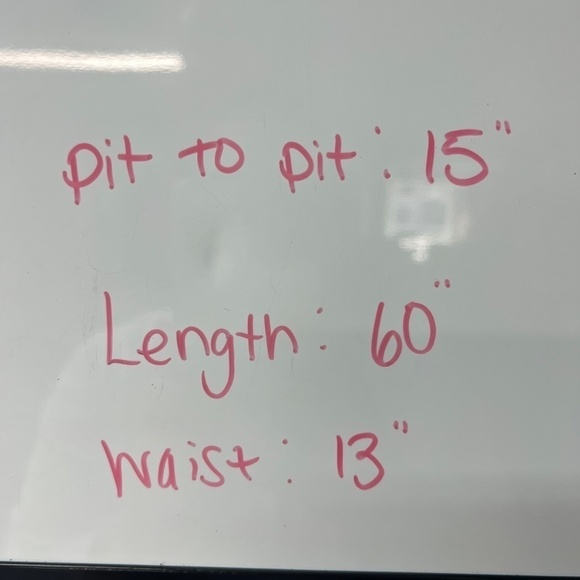 pit to pit: 15"
Length: 60"
waist: 13"